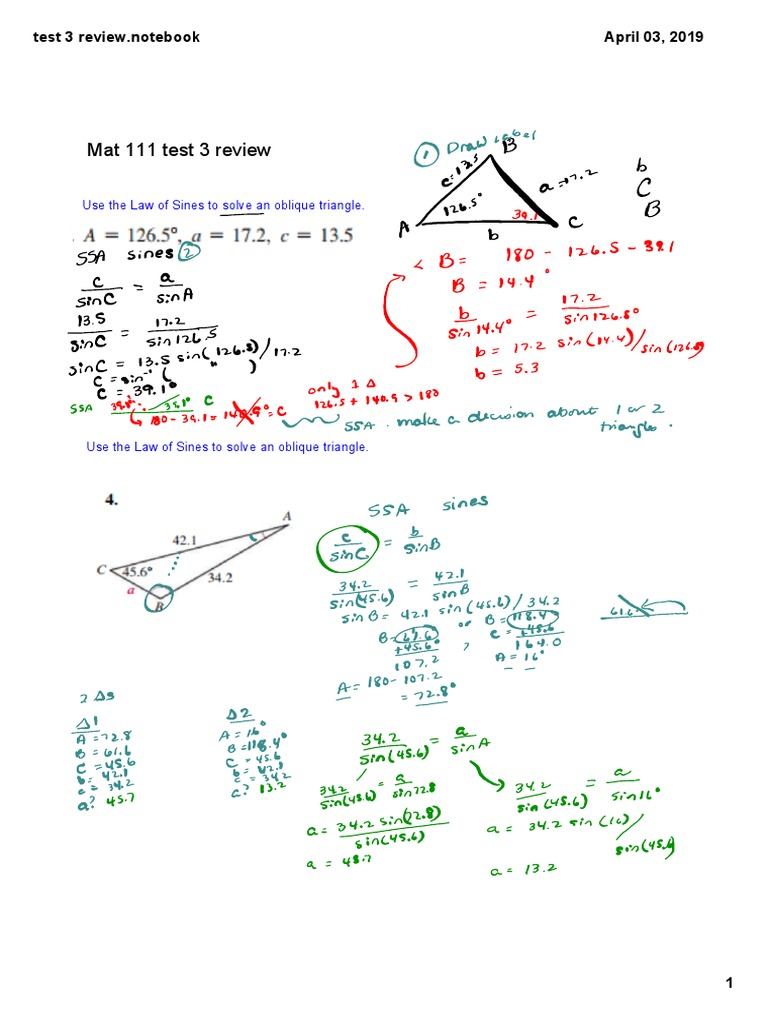 test 3 review.notebook
April 03, 2019
Mat 111 test 3 review
① Draw label
Use the Law of Sines to solve an oblique triangle.
A = 126.5°, a = 17.2, c = 13.5
B
c=13.5
a=17.2
126.5°
39.1
A
b
C
b
C
B
SSA sines ②
c/sinC = a/sinA
13.5/sinC = 17.2/sin126.5
sinC = 13.5 sin(126.5)/17.2
C = sin⁻¹( " )
C = 39.1°
< B = 180 - 126.5 - 39.1
B = 14.4°
b/sin14.4° = 17.2/sin126.5°
b = 17.2 sin(14.4)/sin(126.5)
b = 5.3
SSA 39.1° 39.1° C
180 - 39.1 = 140.9° = C
only 1 Δ
126.5 + 140.9 > 180
SSA. make a decision about 1 or 2
triangles.
Use the Law of Sines to solve an oblique triangle.
4.
A
42.1
C
45.6°
34.2
a
B
SSA sines
c/sinC = b/sinB
34.2/sin(45.6) = 42.1/sinB
sinB = 42.1 sin(45.6)/34.2
B = 61.6° or B = 118.4°
+45.6°
107.2
,
C = +45.6
164.0
A = 16°
A = 180 - 107.2
= 72.8°
61.6
2 Δs
Δ1
A = 72.8
B = 61.6
C = 45.6
b = 42.1
c = 34.2
a? 45.7
Δ2
A = 16°
B = 118.4°
C = 45.6
b = 42.1
c = 34.2
a? 13.2
34.2/sin(45.6) = a/sinA
34.2/sin(45.6) = a/sin72.8
a = 34.2 sin(72.8)/sin(45.6)
a = 45.7
34.2/sin(45.6) = a/sin16°
a = 34.2 sin(16)/sin(45.6)
a = 13.2
1